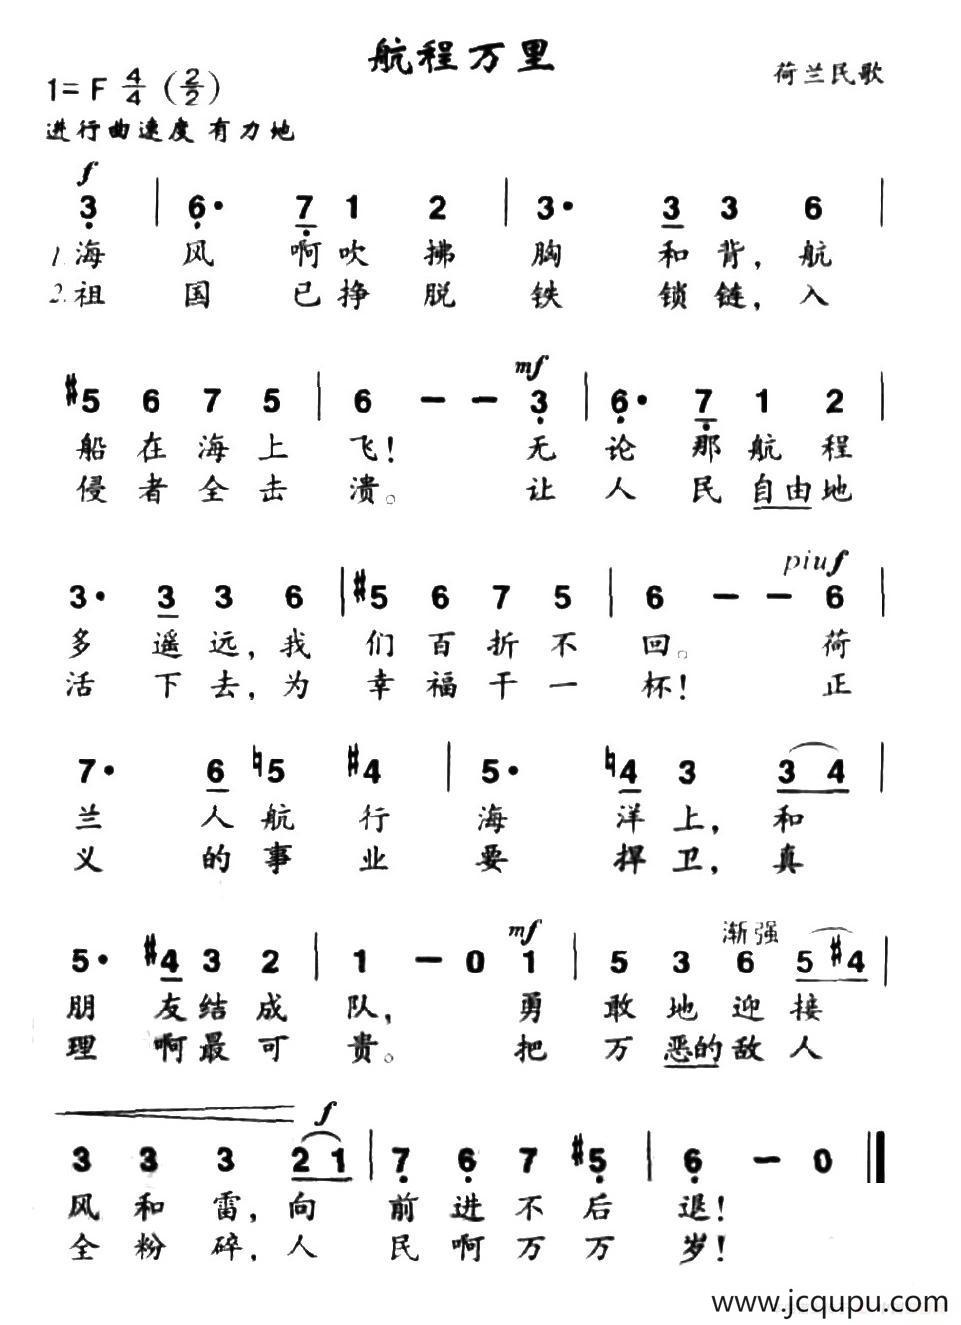 航程万里
荷兰民歌
1= F 4/4 (2/2)
进行曲速度 有力地
f
3 | 6· 7 1 2 | 3· 3 3 6 |
1.海 风 啊吹 拂 胸 和 背，航
2.祖 国 已挣 脱 铁 锁 链，入
mf
#5 6 7 5 | 6 – – 3 | 6· 7 1 2 |
船 在 海 上 飞！ 无 论 那 航 程
侵 者 全 击 溃。 让 人 民 自由地
piuf
3· 3 3 6 | #5 6 7 5 | 6 – – 6 |
多 遥 远，我 们 百 折 不 回。 荷
活 下 去，为 幸 福 干 一 杯！ 正
7· 6 ♮5 #4 | 5· ♮4 3 3 4 |
兰 人 航 行 海 洋 上，和
义 的 事 业 要 捍 卫，真
mf 渐强
5· #4 3 2 | 1 – 0 1 | 5 3 6 5 #4 |
朋 友 结 成 队， 勇 敢 地 迎 接
理 啊 最 可 贵。 把 万 恶的 敌 人
f
3 3 3 2 1 | 7 6 7 #5 | 6 – 0 ‖
风 和 雷，向 前 进 不 后 退！
全 粉 碎，人 民 啊 万 万 岁！
www.jcqupu.com